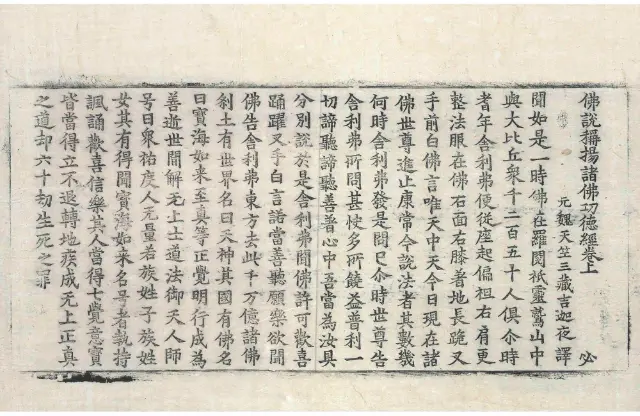 佛說稱揚諸佛功德經卷上
元魏天竺三藏吉迦夜譯 必
聞如是一時佛在羅閱祇靈鷲山中
與大比丘眾千二百五十人俱尒時
耆年舍利弗便從座起偏袒右肩更
整法服在佛右面右膝着地長跪叉
手前白佛言唯天中天今日現在諸
佛世尊進止康常令說法者其數幾
何時舍利弗發是問已尒時世尊告
舍利弗所問甚快多所饒益普利一
切諦聽諦聽善普心中吾當為汝具
分別說於是舍利弗聞佛許可歡喜
踊躍叉手白言諾當善聽願樂欲聞
佛告舍利弗東方去此千万億諸佛
刹土有世界名曰天神其國有佛名
曰寶海如来至真等正覺明行成為
善逝世間解无上士道法御天人師
号曰眾祐度人无量若族姓子族姓
女其有得聞寶海如来名号者執持
諷誦歡喜信樂其人當得七覺意寶
皆當得立不退轉地疾成无上正真
之道却六十劫生死之罪